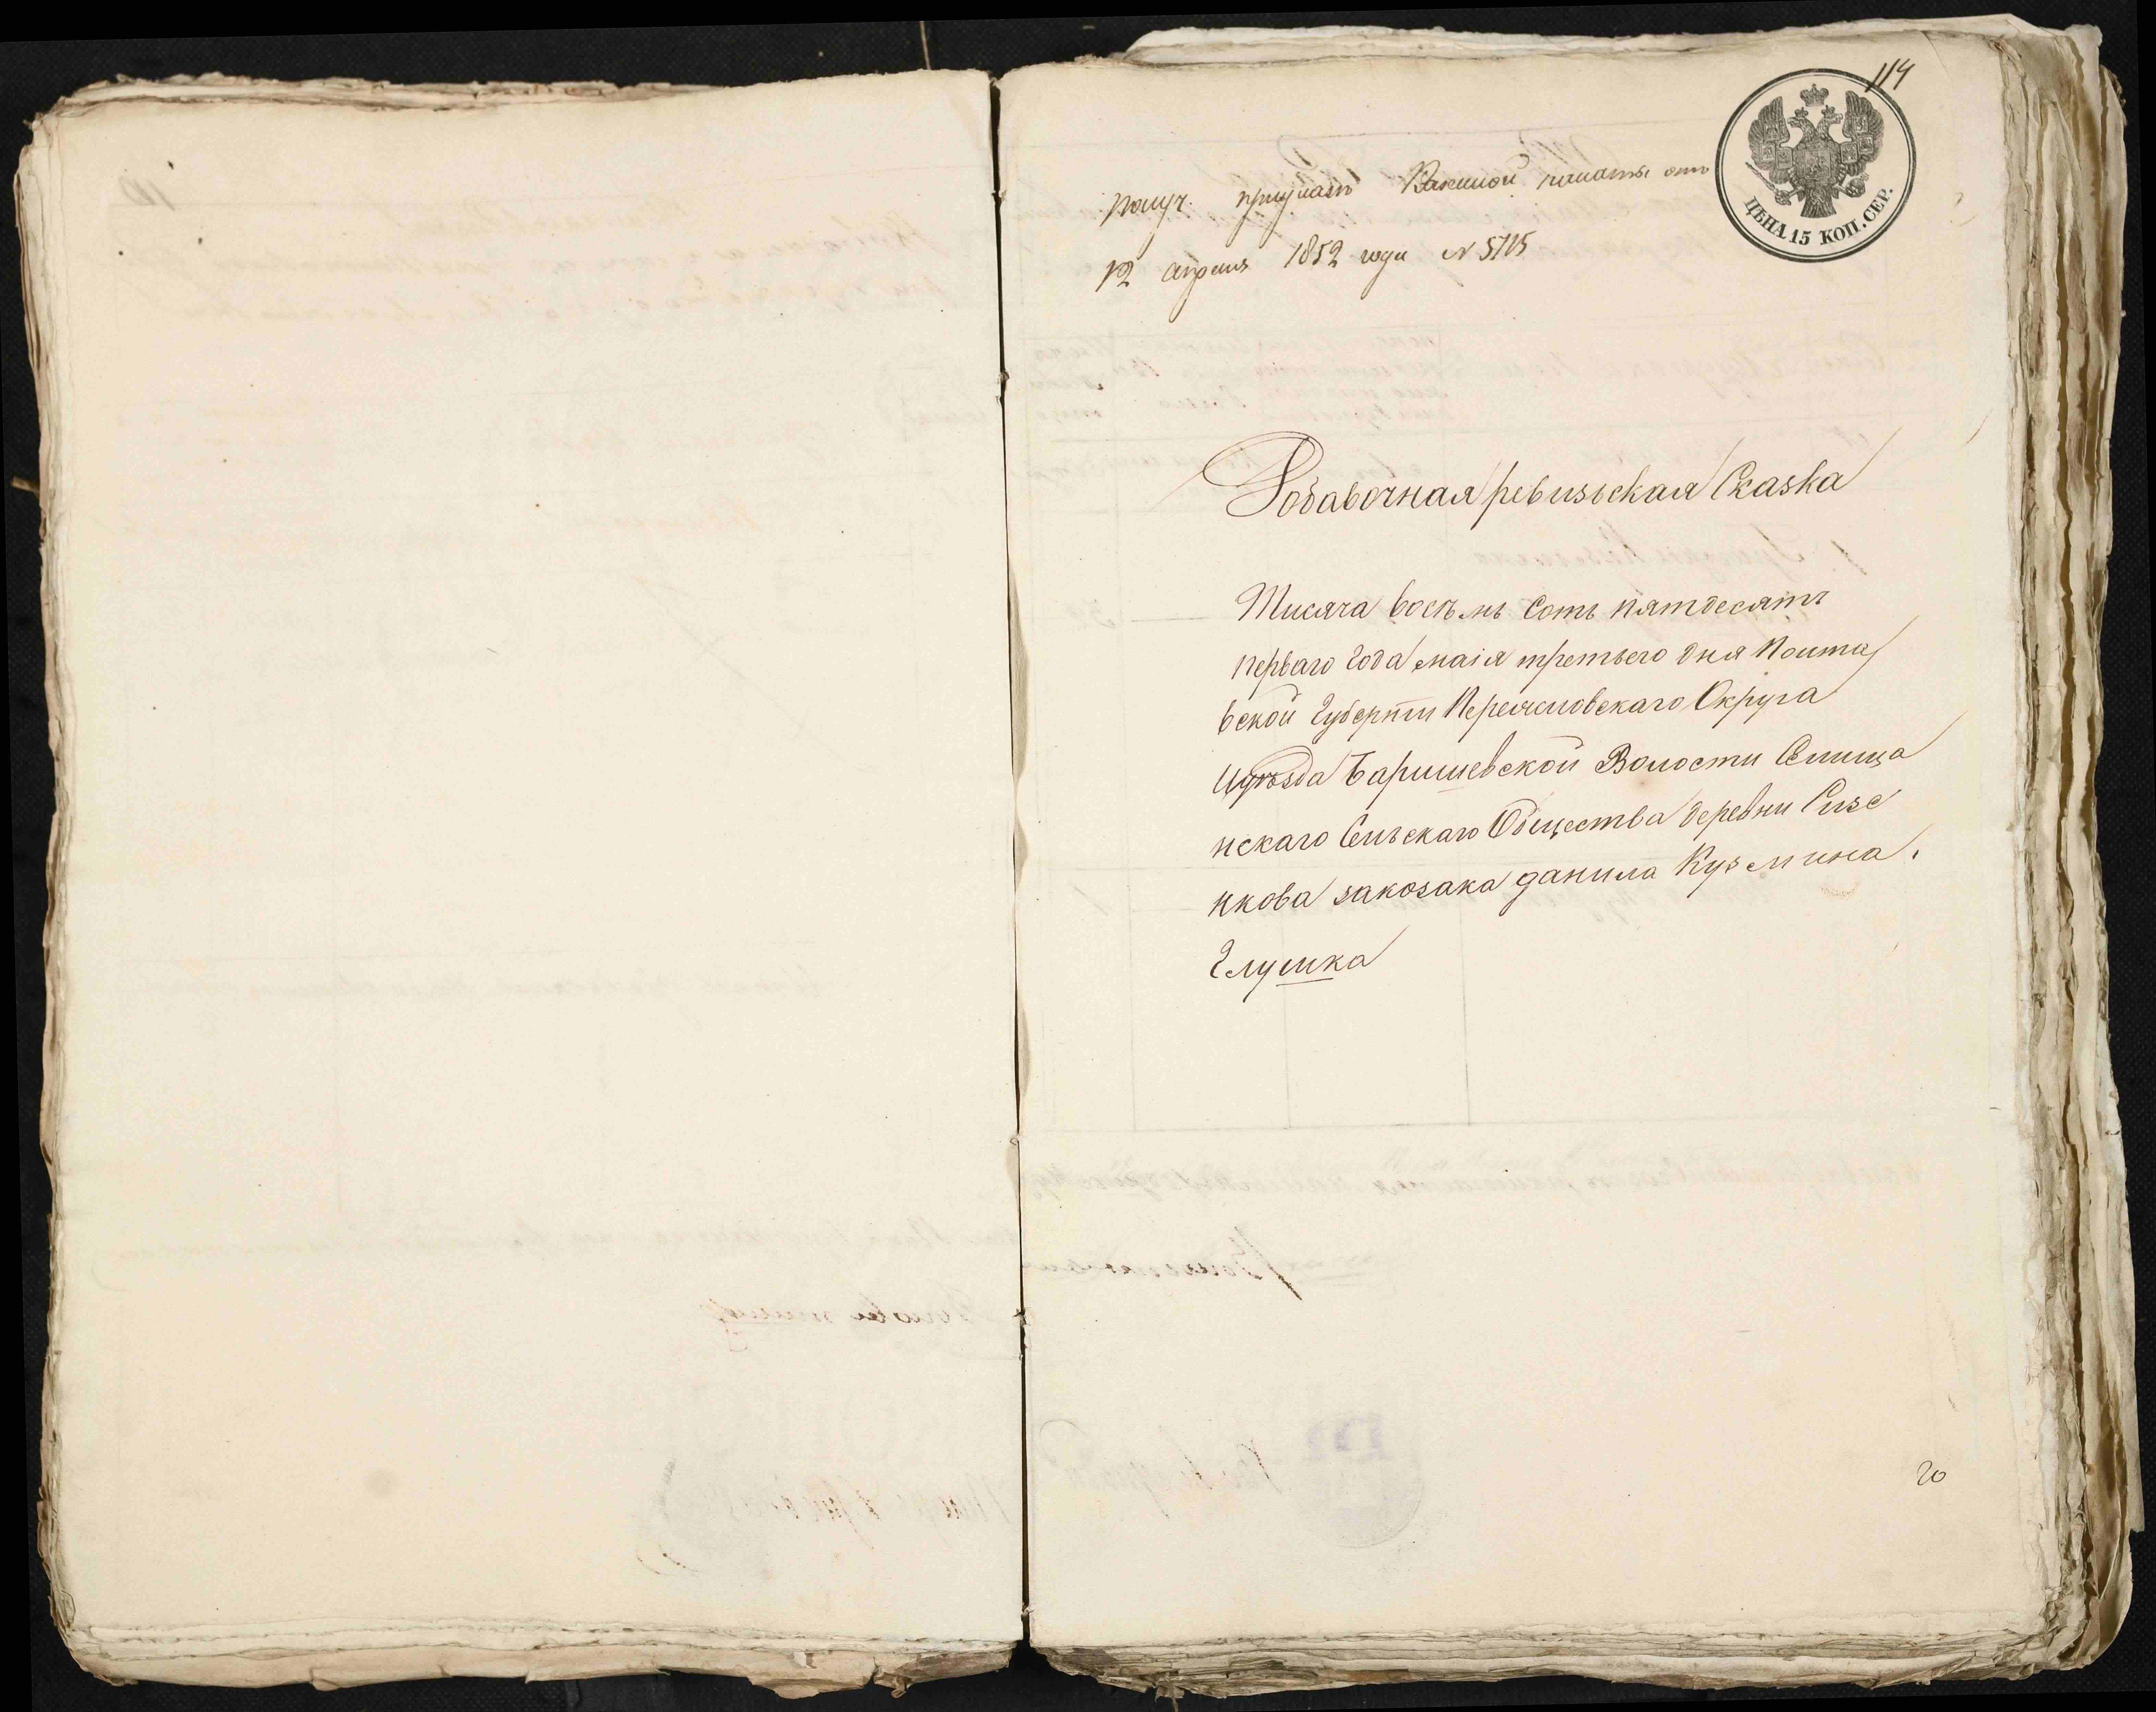 114
получ. при указѣ Казенной палаты отъ
12 апреля 1852 года N 5715
ЦѢНА 15 КОП. СЕР.
Добавочная ревизьская Сказка
Тисяча восѣмь сотъ пятдесятъ
перваго года маія третьего дня Полта
вской Губерніи Переясловскаго Округа
Уѣзда Баришевской Волости Селища
нскаго Сельскаго Общества деревни Сизе
нкова закозака данила Кузмина
Глушка
20